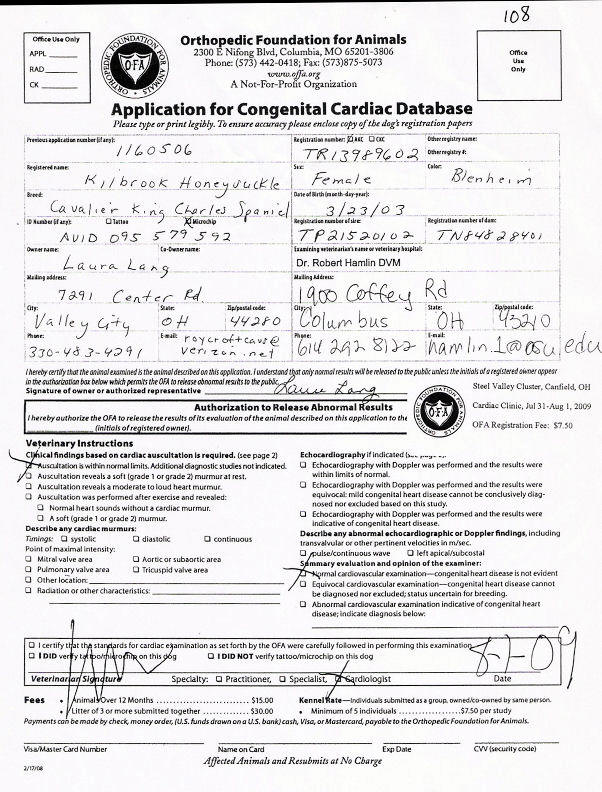 108
Office Use Only
APPL
RAD
CK
ORTHOPEDIC FOUNDATION FOR ANIMALS
OFA
Orthopedic Foundation for Animals
2300 E Nifong Blvd, Columbia, MO 65201-3806
Phone: (573) 442-0418; Fax: (573)875-5073
www.offa.org
A Not-For-Profit Organization
Office
Use
Only
Application for Congenital Cardiac Database
Please type or print legibly. To ensure accuracy please enclose copy of the dog's registration papers
Previous application number (if any): Registration number: AKC CKC Other registry name:
1160506 TR13989602 Other registry #:
Registered name: Sex: Color:
Kilbrook Honeysuckle Female Blenheim
Breed: Date of Birth (month-day-year):
Cavalier King Charles Spaniel 3/23/03
ID Number (if any): Tattoo Microchip Registration number of sire: Registration number of dam:
AVID 095 579 592 TP21520102 TN84828401
Owner name: Co-Owner name: Examining veterinarian's name or veterinary hospital:
Laura Lang Dr. Robert Hamlin DVM
Mailing address: Mailing Address:
7291 Center Rd. 1900 Coffey Rd
City: State: Zip/postal code: City: State: Zip/postal code:
Valley City OH 44280 Columbus OH 43210
Phone: E-mail: Phone: E-mail:
330-483-4291 roycroftcav@verizon.net 614 292 8122 hamlin.1@osu.edu
I hereby certify that the animal examined is the animal described on this application. I understand that only normal results will be released to the public unless the initials of a registered owner appear
in the authorization box below which permits the OFA to release abnormal results to the public.
Signature of owner or authorized representative Laura Lang
Authorization to Release Abnormal Results
I hereby authorize the OFA to release the results of its evaluation of the animal described on this application to the
(initials of registered owner).
OFA
Steel Valley Cluster, Canfield, OH
Cardiac Clinic, Jul 31-Aug 1, 2009
OFA Registration Fee: $7.50
Veterinary Instructions
Clinical findings based on cardiac auscultation is required. (see page 2)
Auscultation is within normal limits. Additional diagnostic studies not indicated.
Auscultation reveals a soft (grade 1 or grade 2) murmur at rest.
Auscultation reveals a moderate to loud heart murmur.
Auscultation was performed after exercise and revealed:
Normal heart sounds without a cardiac murmur.
A soft (grade 1 or grade 2) murmur.
Describe any cardiac murmurs:
Timings: systolic diastolic continuous
Point of maximal intensity:
Mitral valve area Aortic or subaortic area
Pulmonary valve area Tricuspid valve area
Other location:
Radiation or other characteristics:
Echocardiography if indicated
Echocardiography with Doppler was performed and the results were
within limits of normal.
Echocardiography with Doppler was performed and the results were
equivocal: mild congenital heart disease cannot be conclusively diag-
nosed nor excluded based on this study.
Echocardiography with Doppler was performed and the results were
indicative of congenital heart disease.
Describe any abnormal echocardiographic or Doppler findings, including
transvalvular or other pertinent velocities in m/sec.
pulse/continuous wave left apical/subcostal
Summary evaluation and opinion of the examiner:
Normal cardiovascular examination—congenital heart disease is not evident
Equivocal cardiovascular examination—congenital heart disease cannot
be diagnosed nor excluded; status uncertain for breeding.
Abnormal cardiovascular examination indicative of congenital heart
disease; indicate diagnosis below:
I certify that the standards for cardiac examination as set forth by the OFA were carefully followed in performing this examination
I DID verify tattoo/microchip on this dog I DID NOT verify tattoo/microchip on this dog
8-1-09
Veterinarian Signature Specialty: Practitioner, Specialist, Cardiologist Date
Fees • Animals Over 12 Months $15.00
• Litter of 3 or more submitted together $30.00
Kennel Rate—Individuals submitted as a group, owned/co-owned by same person.
• Minimum of 5 individuals $7.50 per study
Payments can be made by check, money order, (U.S. funds drawn on a U.S. bank) cash, Visa, or Mastercard, payable to the Orthopedic Foundation for Animals.
Visa/Master Card Number Name on Card Exp Date CVV (security code)
2/17/08
Affected Animals and Resubmits at No Charge